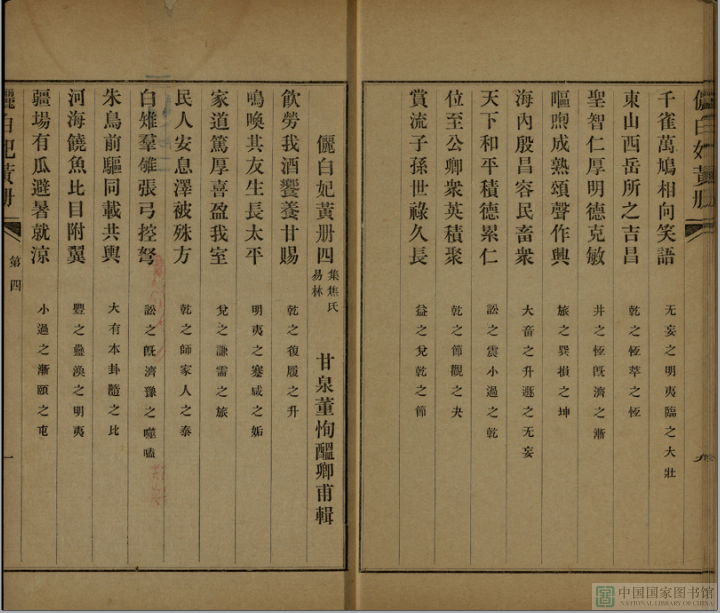 儷白妃黃册
千雀萬鳩相向笑語 无妄之明夷臨之大壯
東山西岳所之吉昌 乾之恆萃之恆
聖智仁厚明德克敏 井之恆旣濟之漸
嘔喣成熟頌聲作興 旅之巽損之坤
海內殷昌容民畜衆 大畜之升遯之无妄
天下和平積德累仁 訟之震小過之乾
位至公卿衆英積聚 乾之節觀之夬
賞流子孫世祿久長 益之兌乾之節
儷白妃黃册四 集焦氏易林 甘泉董恂醞卿甫輯
飮勞我酒饗養甘賜 乾之復履之升
鳴喚其友生長太平 明夷之蹇咸之姤
家道篤厚喜盈我室 兌之謙需之旅
民人安息澤被殊方 乾之師家人之泰
白雉羣雊張弓控弩 訟之旣濟豫之噬嗑
朱鳥前驅同載共輿 大有本卦隨之比
河海饒魚比目附翼 豐之蠱渙之明夷
疆場有瓜避暑就涼 小過之漸頤之屯
儷白妃黃册 第四 一
中国国家图书馆
NATIONAL LIBRARY OF CHINA